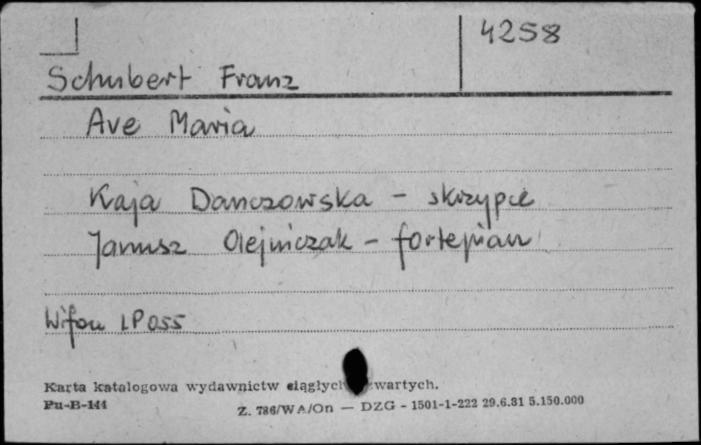 4258
Schubert Franz
Ave Maria
Kaja Danczowska - skrzypce
Janusz Olejniczak - fortepian
Wifon LP 055
Karta katalogowa wydawnictw ciągłych wartych.
Pu-B-144 Z. 786/WA/On — DZG - 1501-1-222 29.6.81 5.150.000